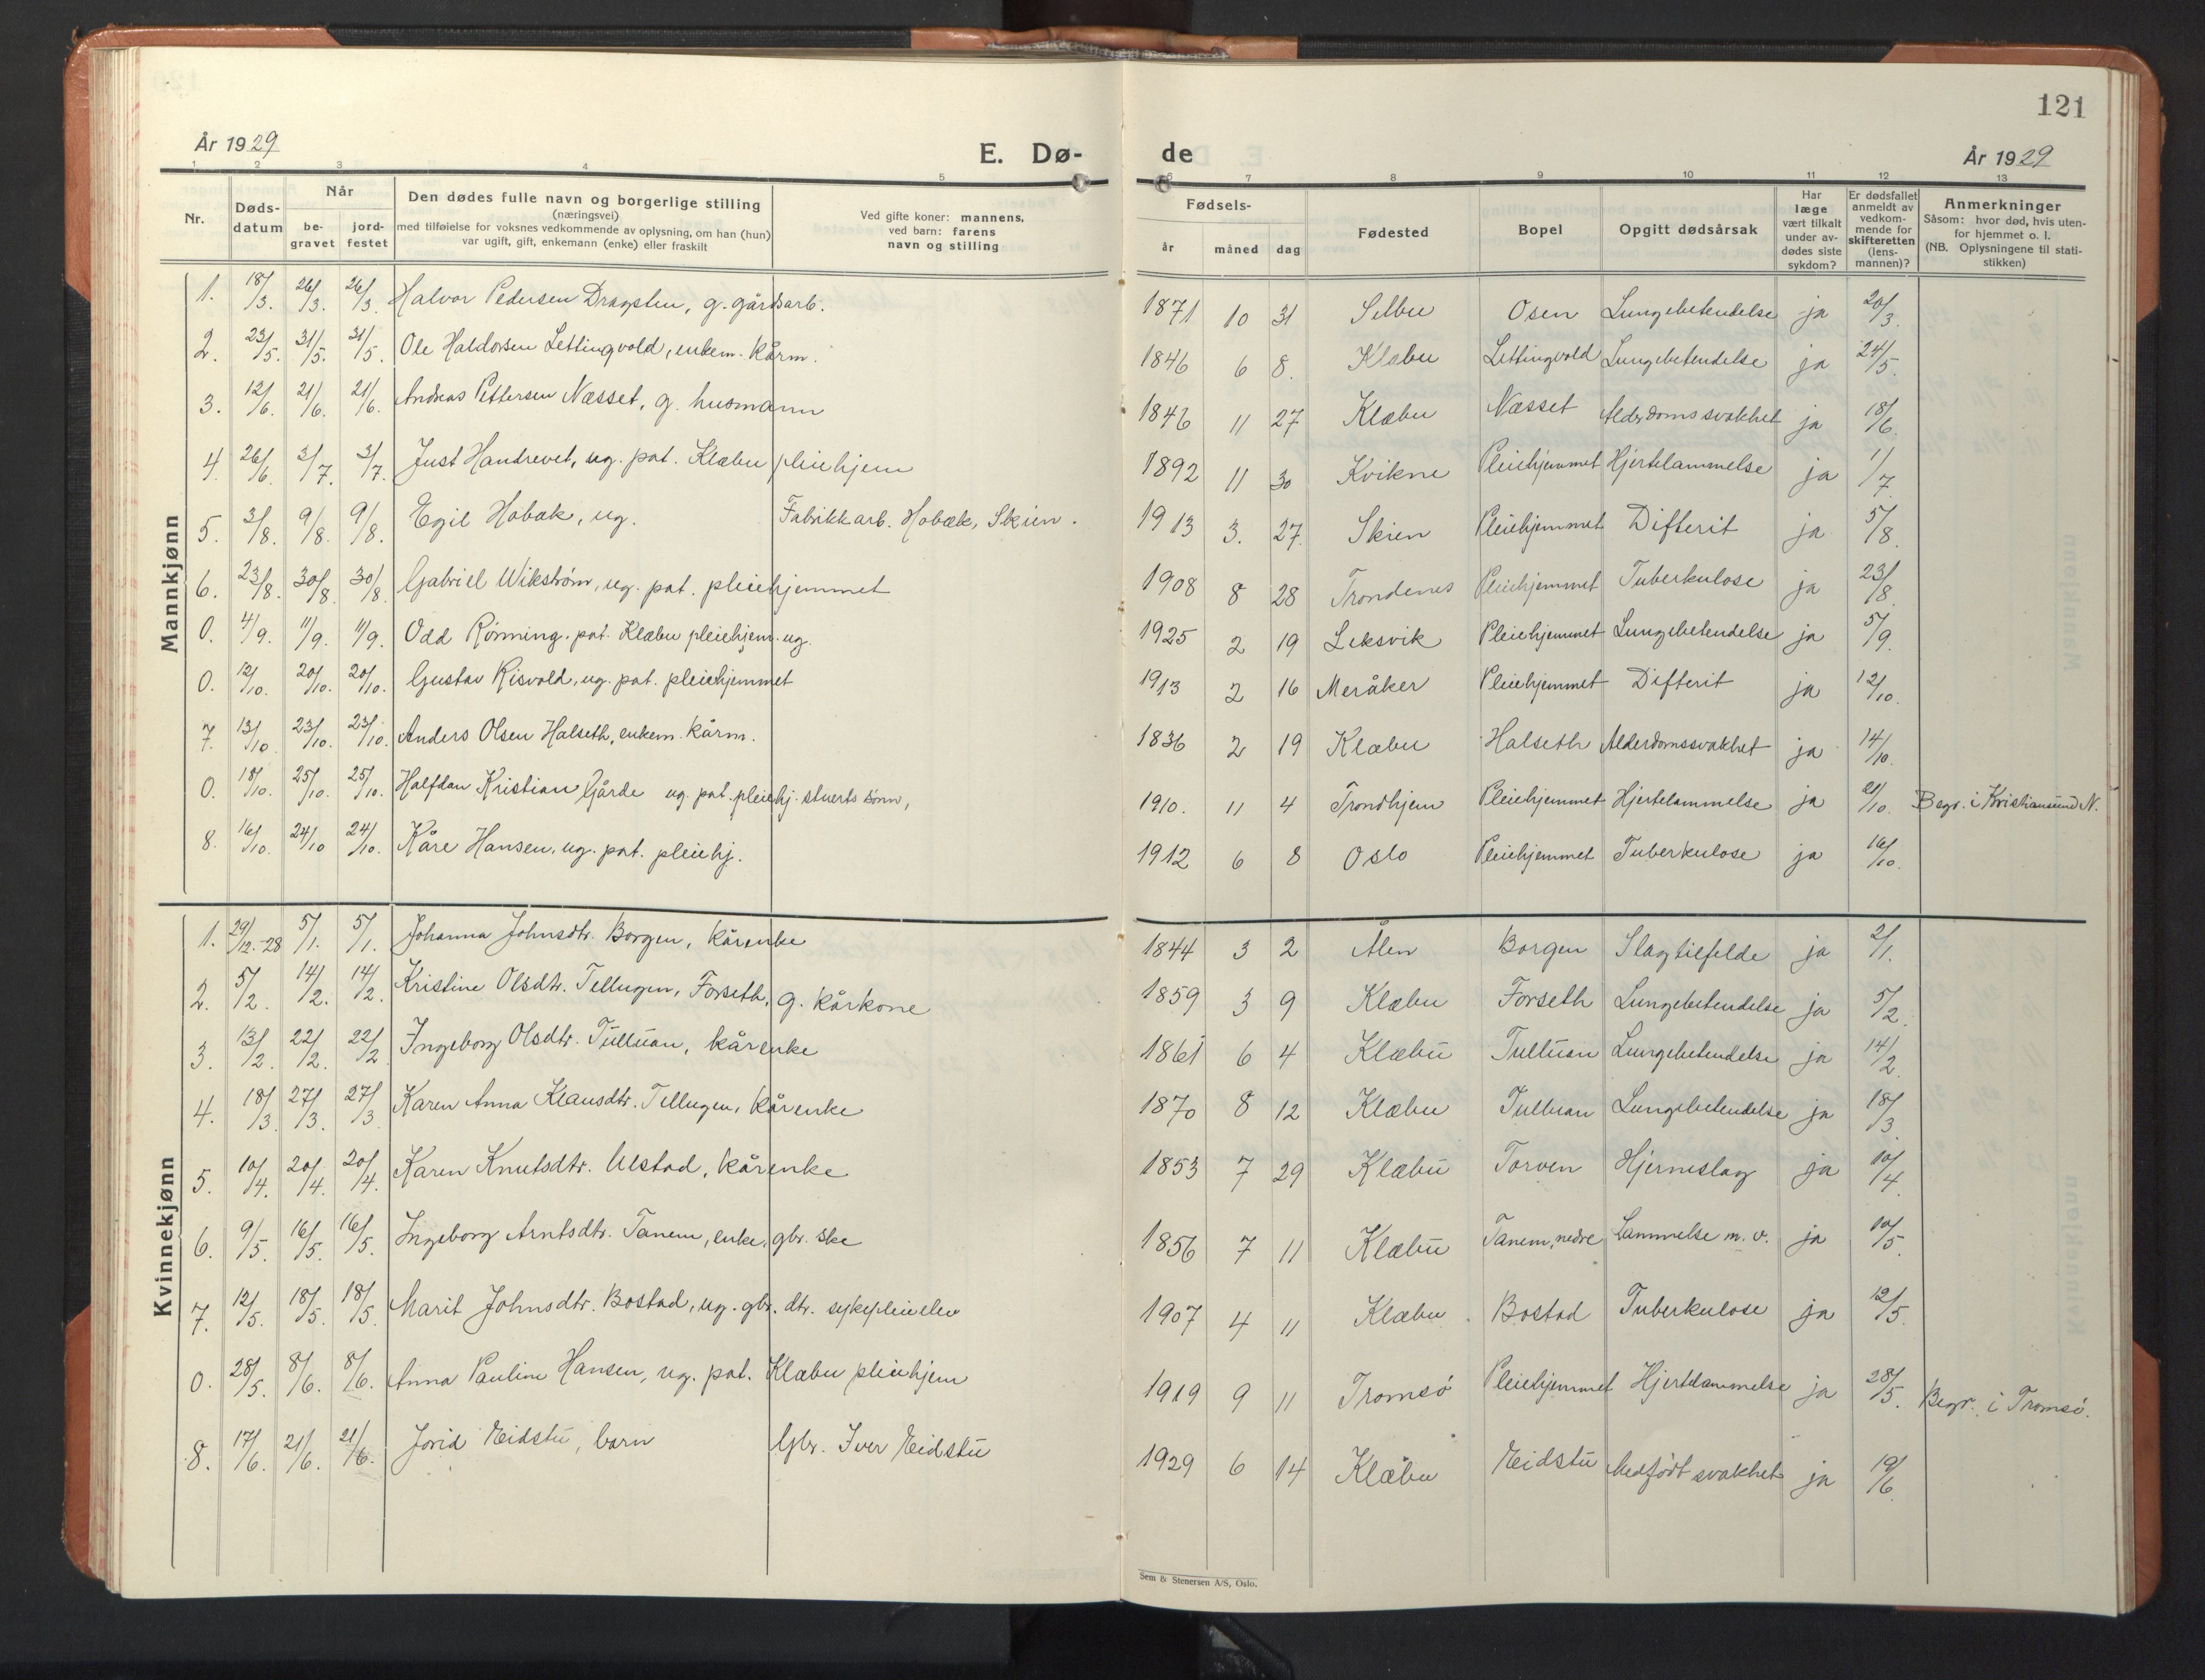 121
År 1929 E. Dø- de År 1929
1 2 3 4 5 6 7 8 9 10 11 12 13
Nr. Dødsdatum Når begravet jordfestet Den dødes fulle navn og borgerlige stilling (næringsvei) med tilføielse for voksnes vedkommende av oplysning, om han (hun) var ugift, gift, enkemann (enke) eller fraskilt Ved gifte koner: mannens, ved barn: farens navn og stilling Fødsels- år måned dag Fødested Bopel Opgitt dødsårsak Har læge vært tilkalt under avdødes siste sykdom? Er dødsfallet anmeldt av vedkommende for skifteretten (lensmannen)? Anmerkninger Såsom: hvor død, hvis utenfor hjemmet o. l. (NB. Oplysningene til statistikken)
Mannkjønn
1. 18/3. 26/3. 26/3. Halvor Pedersen Dragsten, g. gårdsarb. 1871 10 31 Selbu Osen Lungebetendelse ja 20/3.
2. 23/5. 31/5. 31/5. Ole Haldorsen Lettingvold, enkem. kårm. 1846 6 8. Klæbu Lettingvold Lungebetendelse ja 24/5.
3. 12/6. 21/6. 21/6. Andreas Pettersen Næsset, g. husmann 1846 11 27 Klæbu Næsset Alderdomssvakhet ja 18/6.
4. 26/6 3/7. 3/7. Just Handrevet, ug. pat. Klæbu pleiehjem 1892 11 30 Kvikne Pleiehjemmet Hjertelammelse ja 1/7.
5. 3/8. 9/8. 9/8. Egil Hobæk, ug. Fabrikkarb. Hobæk, Skien. 1913 3. 27. Skien Pleiehjemmet Difterit ja 5/8.
6. 23/8. 30/8. 30/8. Gabriel Wikstrøm, ug. pat. pleiehjemmet 1908 8 28 Trondenes Pleiehjemmet Tuberkulose ja 23/8.
0. 4/9. 11/9. 11/9. Odd Rønning. pat. Klæbu pleiehjem. ug. 1925 2 19 Leksvik Pleiehjemmet Lungebetendelse ja 5/9.
0. 12/10. 20/10. 20/10. Gustav Risvold, ug. pat. pleiehjemmet 1913 2 16 Meråker Pleiehjemmet Difterit ja 12/10.
7. 13/10 23/10. 23/10. Anders Olsen Halseth, enkem. kårm. 1836 2 19 Klæbu Halseth Alderdomssvakhet ja 14/10.
0. 18/10. 25/10. 25/10. Halfdan Kristian Gårde ug. pat. pleiehj. stuerts sønn, 1910. 11 4 Trondhjem Pleiehjemmet Hjertelammelse ja 21/10. Begr. i Kristiansund N.
8. 16/10. 24/10 24/10. Kåre Hansen, ug. pat. pleiehj. 1912 6 8 Oslo Pleiehjemmet Tuberkulose ja 16/10.
Kvinnekjønn
1. 29/12.-28 5/1. 5/1. Johanna Johnsdtr. Borgen, kårenke 1844 3 2 Ålen Borgen Slagtilfelde ja 2/1.
2. 5/2. 14/2. 14/2. Kristine Olsdtr. Tellugen, Forseth, g. kårkone 1859 3 9 Klæbu Forseth Lungebetendelse ja 5/2.
3. 13/2. 22/2. 22/2 Ingeborg Olsdtr. Tulluan, kårenke 1861 6 4 Klæbu Tulluan Lungebetendelse ja 14/2.
4. 18/3. 27/3. 27/3 Karen Anna Klausdtr. Tellugen, kårenke 1870 8 12 Klæbu Tulluan Lungebetendelse ja 18/3.
5. 10/4. 20/4. 20/4. Karen Knutsdtr. Ulstad, kårenke 1853 7 29 Klæbu Torven Hjerneslag ja 10/4.
6. 9/5. 16/5. 16/5. Ingeborg Arntsdtr. Tanem, enke, gbr. ske 1856 7 11 Klæbu Tanem, nedre Lammelse m. v. ja 10/5.
7. 12/5. 18/5. 18/5. Marit Johnsdtr. Bostad, ug. gbr. dtr. sykepleieelev 1907 4 11 Klæbu Bostad Tuberkulose ja 12/5.
0. 28/5. 8/6. 8/6. Anna Pauline Hansen, ug. pat. Klæbu pleiehjem 1919 9 11 Tromsø Pleiehjemmet Hjertelammelse ja 28/5. Begr. i Tromsø.
8. 17/6. 21/6. 21/6. Jorid Eidstu, barn Gbr. Iver Eidstu 1929 6 14 Klæbu Eidstu Medfødt svakhet ja 19/6.
Sem & Stenersen A/S, Oslo.